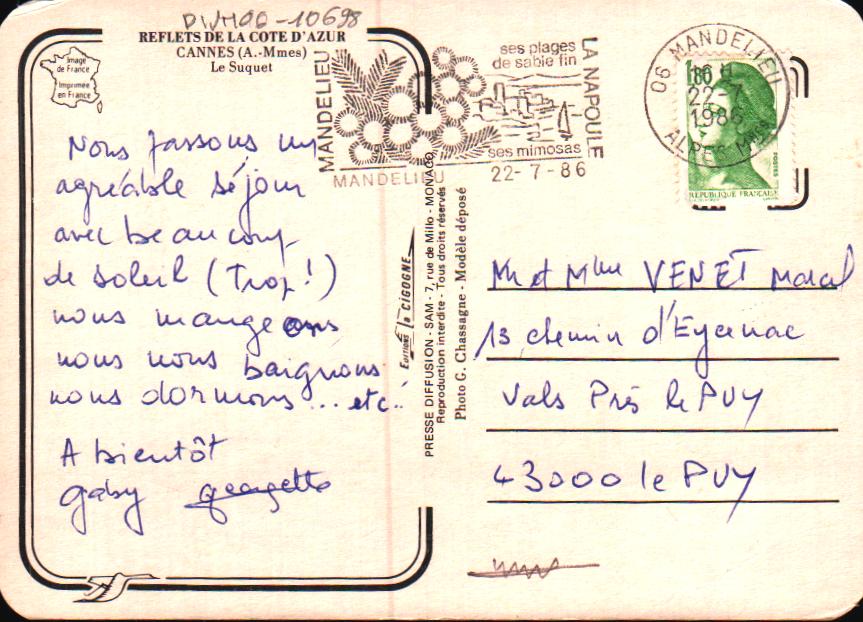 DWH00-10698
REFLETS DE LA COTE D'AZUR
CANNES (A.-Mmes)
Le Suquet
Image
de France
Imprimée
en France
Nous passons un
agréable séjour
avec beaucoup
de soleil (Trop!)
nous mangeons
nous nous baignons
nous dormons... etc..
A bientôt
gaby georgette
MANDELIEU
ses plages
de sable fin
LA NAPOULE
ses mimosas
MANDELIEU
22-7-86
06 MANDELIEU
22-7
1986
ALPES MMES
POSTES
REPUBLIQUE FRANCAISE
Editions la CIGOGNE
PRESSE DIFFUSION - SAM - 7, rue de Millo - MONACO
Reproduction interdite - Tous droits réservés
Photo G. Chassagne - Modèle déposé
Mr et Mme VENET
13 chemin
Vals Près le PUY
43000 le PUY